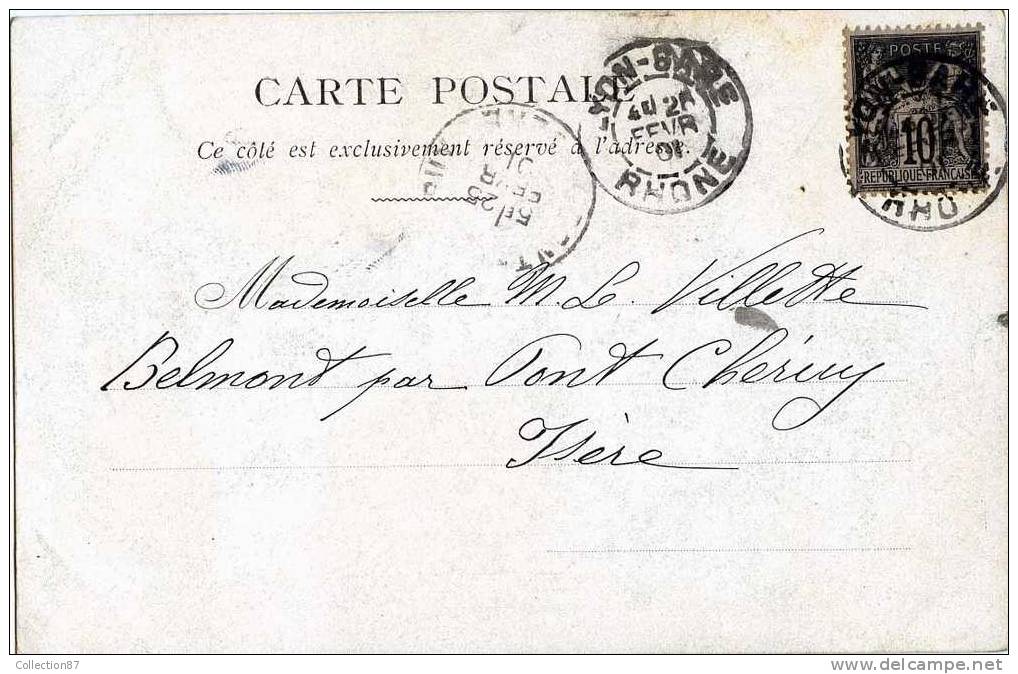 CARTE POSTALE
Ce côté est exclusivement réservé à l'adresse.
LYON-GARE
FEVR
01
RHONE
POSTE
10
REPUBLIQUE FRANÇAISE
25
FEVR
01
Mademoiselle M. L. Villette
Belmont par Pont Chéruy
Isère
Collection87
www.delcampe.net